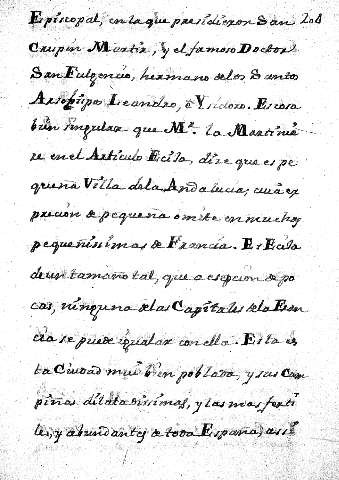 Episcopal, en la que presidieron San 208
Crispin Martir, y el famoso Doctor
San Fulgencio, hermano de los Santos
Arzobispo Leandro, è Ysidoro. Es cosa
bien singular que Mr. la Martinié
re en el Articulo Ecija, dize que es pe
queña Villa de la Andalucia; cuia ex
precion de pequeña omite en muchas
pequeñisimas de Francia. Es Ecija
de un tamaño tal, que a esepcion de po
cas, ninguna de las Capitales de la
se puede igualar con ella. Esta es
ta Ciudad mui bien poblada, y sus Cam
piñas dilatadissimas, y las mas ferti
les, y abundantes de toda España, assi